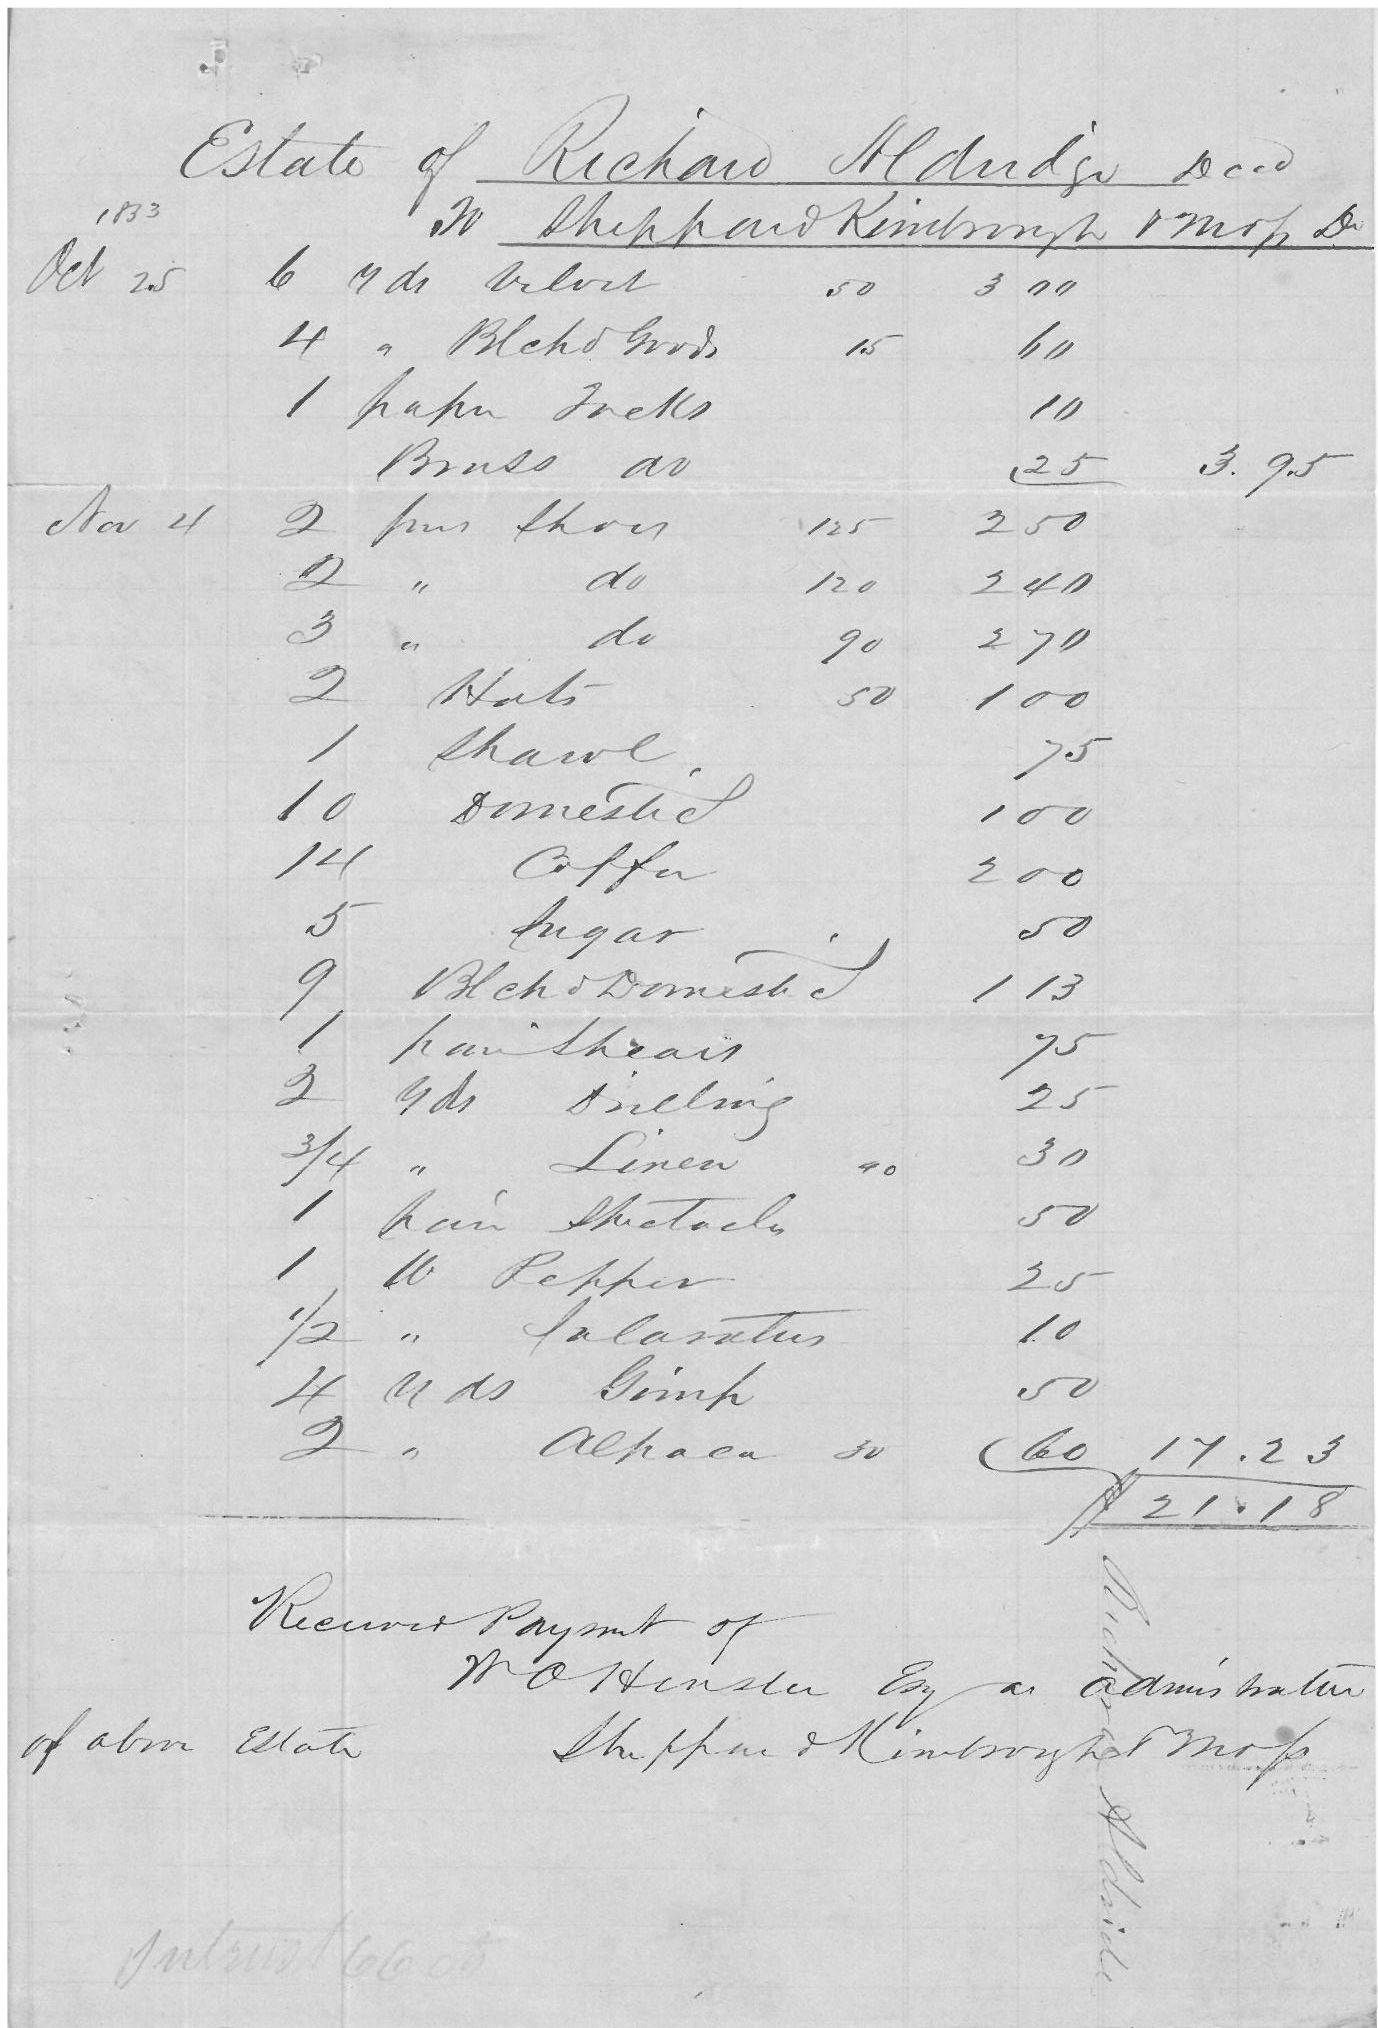 Estate of Richard Aldridge Decd
1833 To Sheppard Kimbrough & Moss Dr
Oct 25 6 yds Velvet 50 3 00
4 " Blchd Goods 15 60
1 paper Tacks 10
Brass do 25 3.95
Nov 4 2 prs Shoes 125 250
2 " do 120 240
3 " do 90 270
2 Hats 50 100
1 Shawl 75
10 Domestic 100
14 Coffee 200
5 Sugar 50
9 Blchd Domestic 113
1 pair Shears 75
2 yds Drilling 25
3/4 " Linen 40 30
1 pair Spectacles 50
1 lb Pepper 25
1/2 " Salaratus 10
4 yds Gimp 50
2 " Alpaca 30 60 17.23
$21.18
Received Paymnt of
W O Hinsle Esq as admistrator
of above Estate Sheppard Kimbrough & Moss
Richard Aldride
Intrust 66